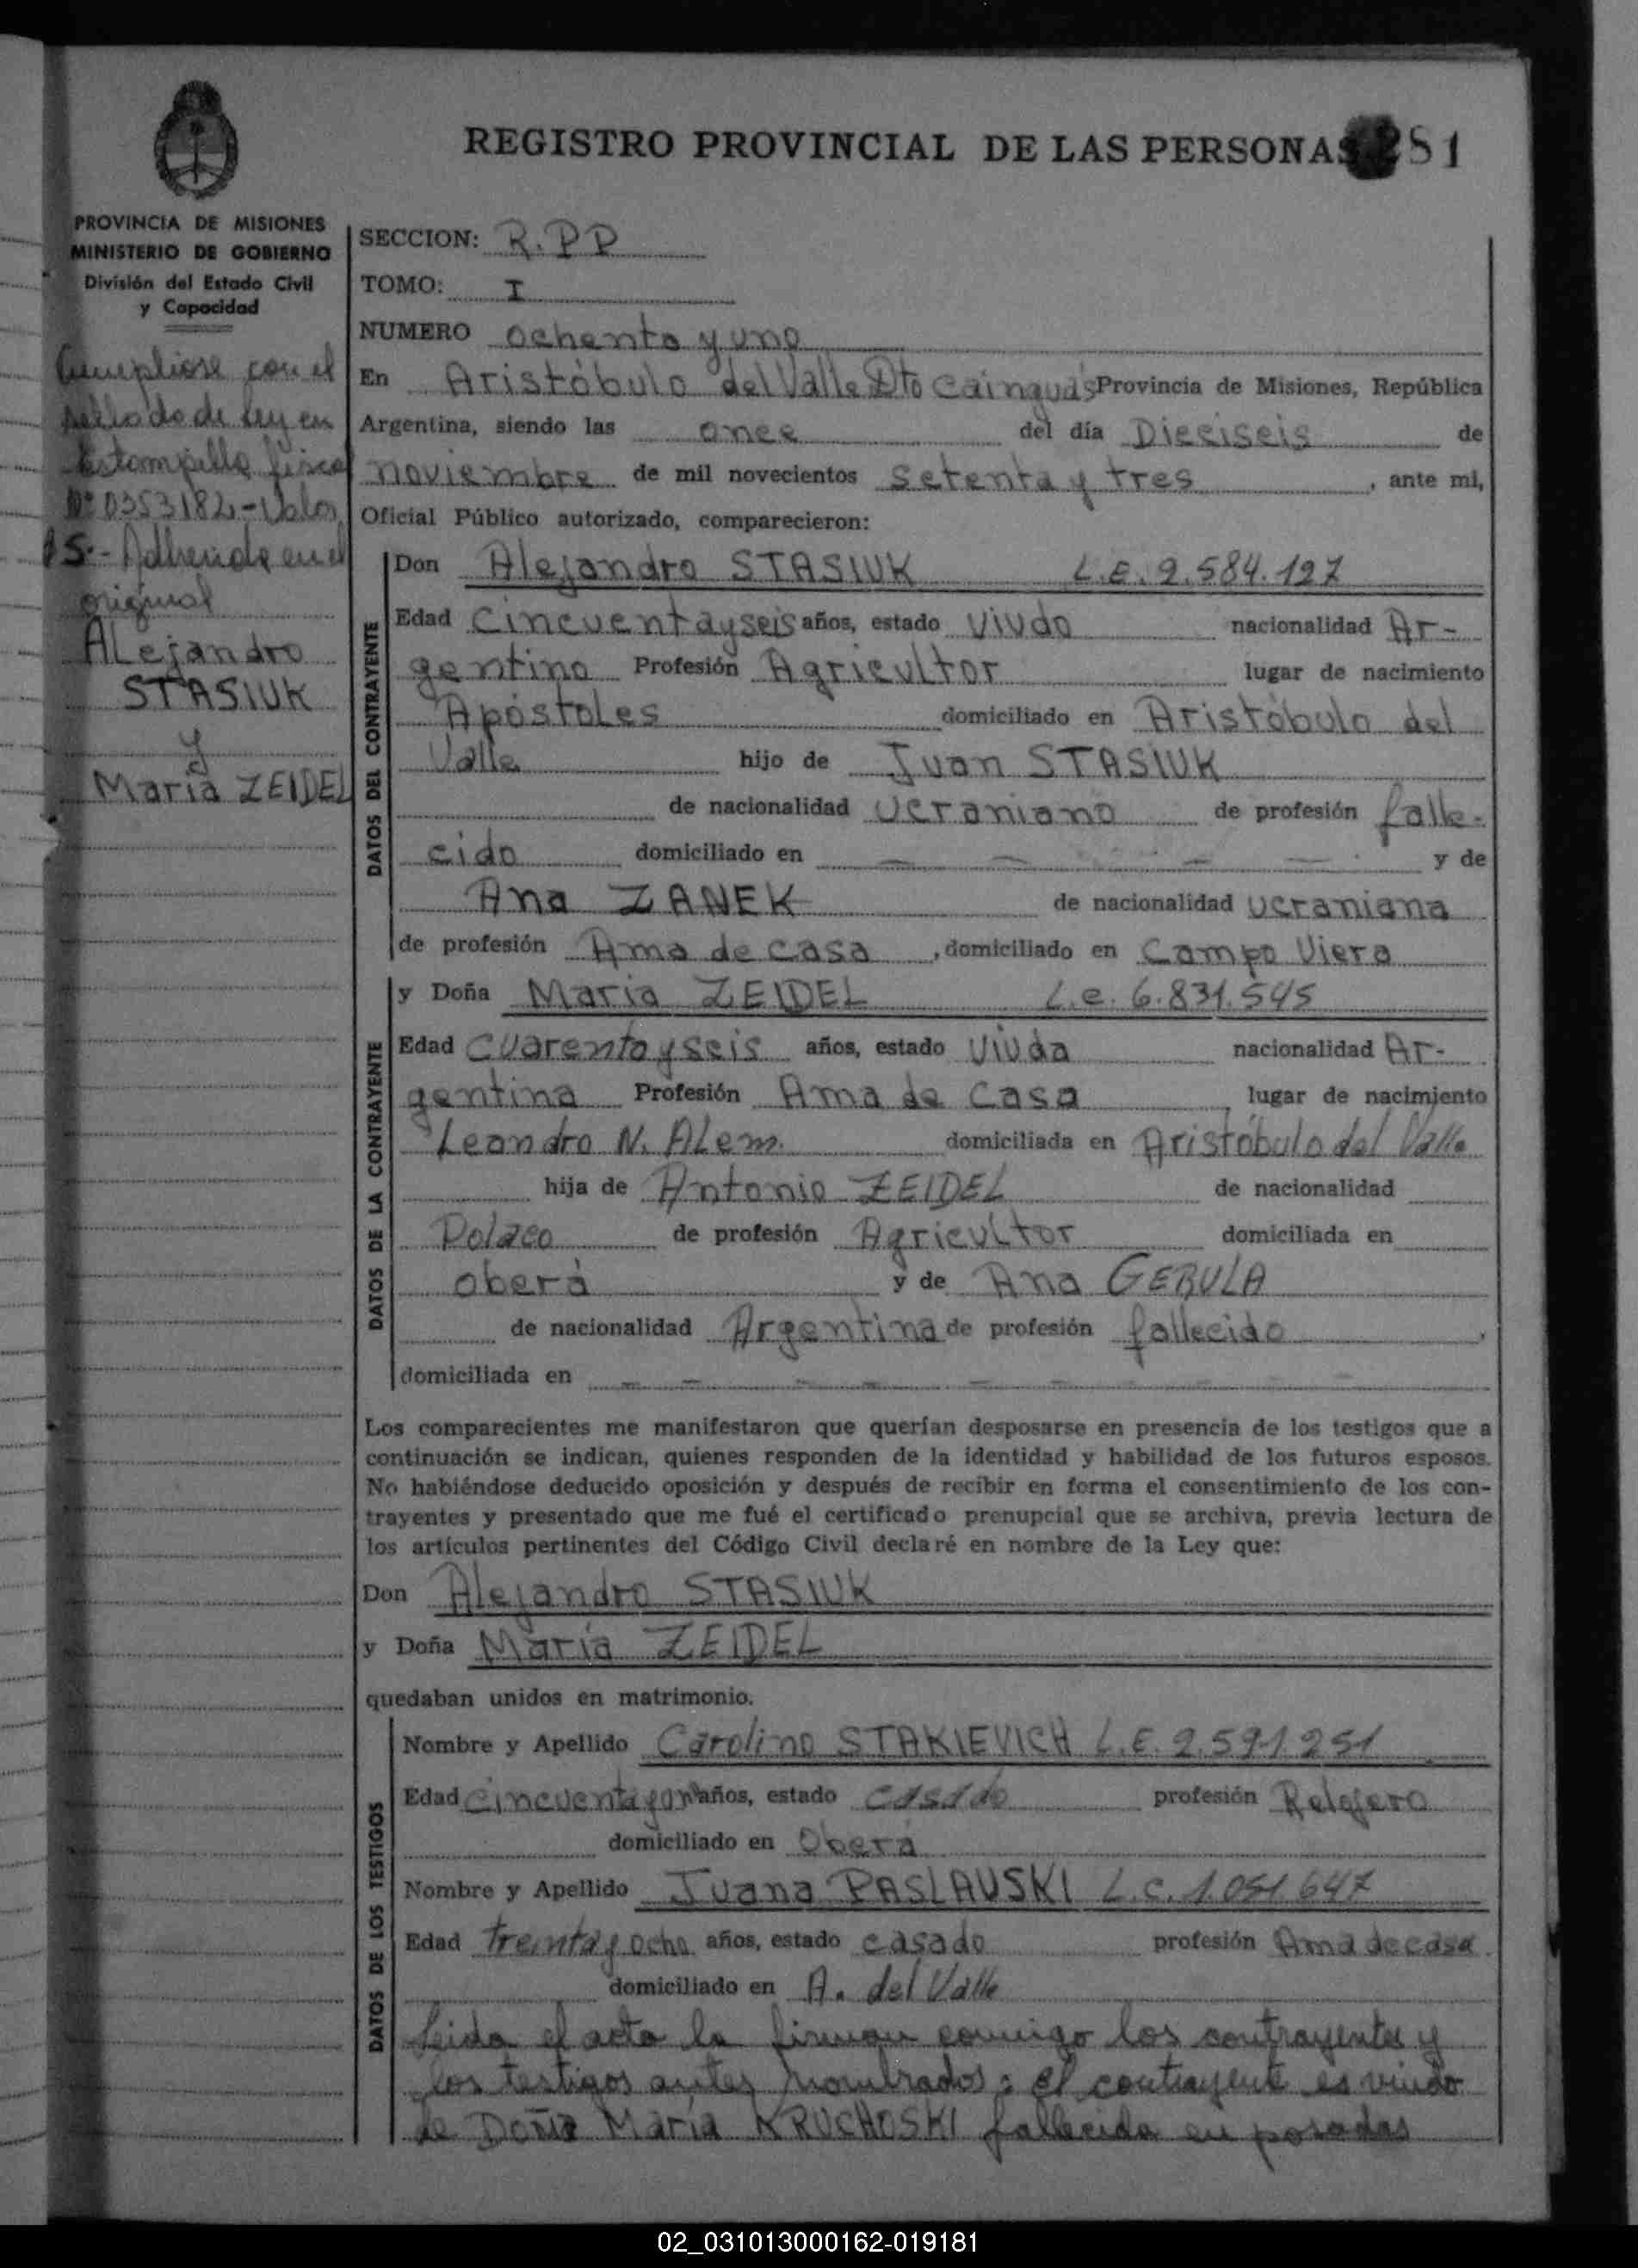 REGISTRO PROVINCIAL DE LAS PERSONAS 281
PROVINCIA DE MISIONES
MINISTERIO DE GOBIERNO
División del Estado Civil
y Capacidad
Cumpliose con el
sellado de ley en
Estampilla fiscal
Nº 0353182 - Valor
$5.- Adherida en el
original
Alejandro
STASIUK
y
María ZEIDEL
SECCION: R.P.P
TOMO: I
NUMERO ochenta y uno
En Aristóbulo del Valle Dto Cainguás Provincia de Misiones, República
Argentina, siendo las once del día Dieciseis de
noviembre de mil novecientos setenta y tres, ante mi,
Oficial Público autorizado, comparecieron:
DATOS DEL CONTRAYENTE
Don Alejandro STASIUK L.E. 2.584.127
Edad Cincuenta y seis años, estado Viudo nacionalidad Ar-
gentino Profesión Agricultor lugar de nacimiento
Apóstoles domiciliado en Aristóbulo del
Valle hijo de Juan STASIUK
de nacionalidad ucraniano de profesión falle-
cido domiciliado en — — — — y de
Ana ZANEK de nacionalidad ucraniana
de profesión Ama de casa, domiciliado en Campo Viera
DATOS DE LA CONTRAYENTE
y Doña María ZEIDEL L.c. 6.831.545
Edad Cuarenta y seis años, estado Viuda nacionalidad Ar-
gentina Profesión Ama de casa, lugar de nacimiento
Leandro N. Alem. domiciliada en Aristóbulo del Valle
hija de Antonio ZEIDEL de nacionalidad
Polaco de profesión Agricultor domiciliada en
oberá y de Ana GEBULA
de nacionalidad Argentina de profesión fallecida,
domiciliada en — — — — — — — —
Los comparecientes me manifestaron que querían desposarse en presencia de los testigos que a
continuación se indican, quienes responden de la identidad y habilidad de los futuros esposos.
No habiéndose deducido oposición y después de recibir en forma el consentimiento de los con-
trayentes y presentado que me fué el certificado prenupcial que se archiva, previa lectura de
los artículos pertinentes del Código Civil declaré en nombre de la Ley que:
Don Alejandro STASIUK
y Doña María ZEIDEL
quedaban unidos en matrimonio.
DATOS DE LOS TESTIGOS
Nombre y Apellido Carolino STAKIEVICH L.E. 2.591.251
Edad Cincuenta y un años, estado casado profesión Relojero
domiciliado en Oberá
Nombre y Apellido Juana PASLAUSKI L.C. 1.051.647
Edad treinta y ocho años, estado casado profesión Ama de casa
domiciliado en A. del Valle
Leida el acta la firman conmigo los contrayentes y
los testigos antes nombrados: el contrayente es viudo
de Doña María KRUCHOSKI fallecida en posadas
02_031013000162-019181